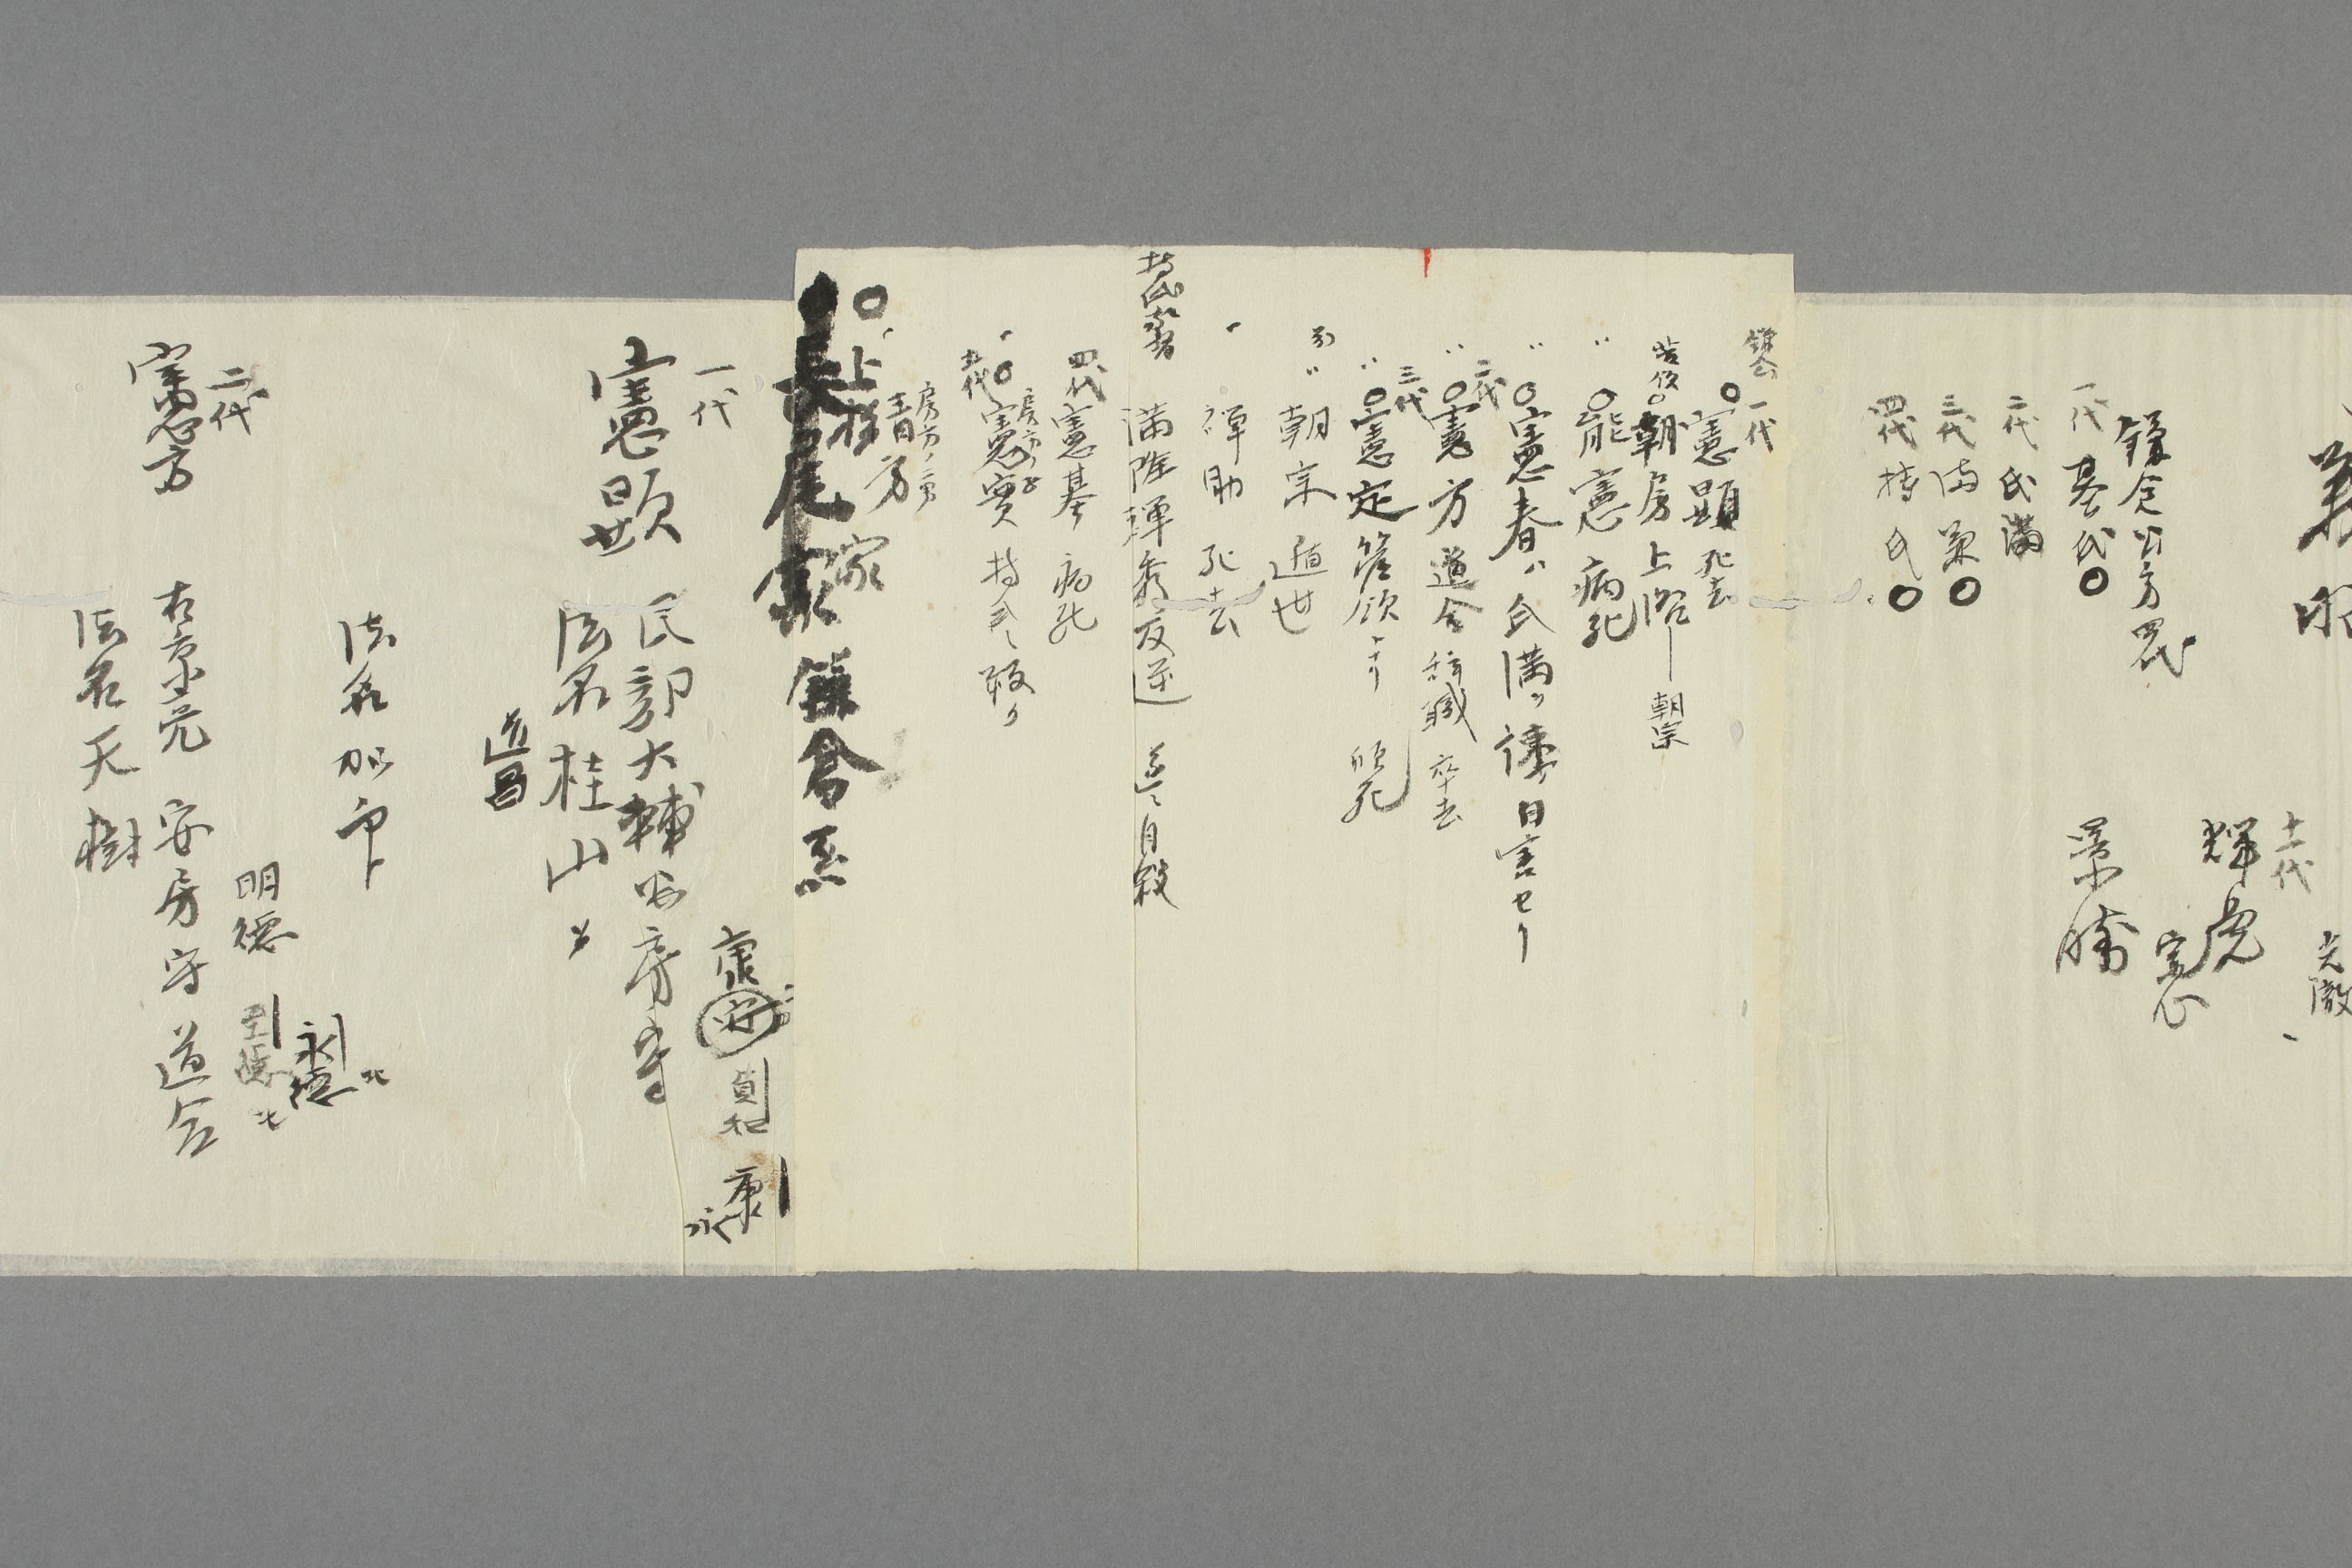 義
十一代
輝虎
憲
景勝
鎌倉公方四代
一代 基氏〇
二代 氏満
三代 満兼〇
四代 持氏〇
鎌倉
一代
〇憲顕 死去
〇朝房 上洛 朝宗
〇能憲 病死
〇憲春ハ氏満ヲ諌自害セリ
二代
〇憲方 道合 辞職 卒去
三代
〇憲定 管領ナリ 頓死
朝宗 遁世
禅助 死去
満隆禅秀反逆 遂ニ自殺
四代 憲基 病死
五代 〇憲実 持氏ニ叛ク
房方ノ子
房方ノ二男
清方
〇上杉家
長尾家鎌倉系
一代
憲顕
民部大輔安房守
法名桂山
道昌
康安
貞和
康永
法名
永徳
明徳
至徳
二代
憲方
右京亮 安房守 道合
法名天樹